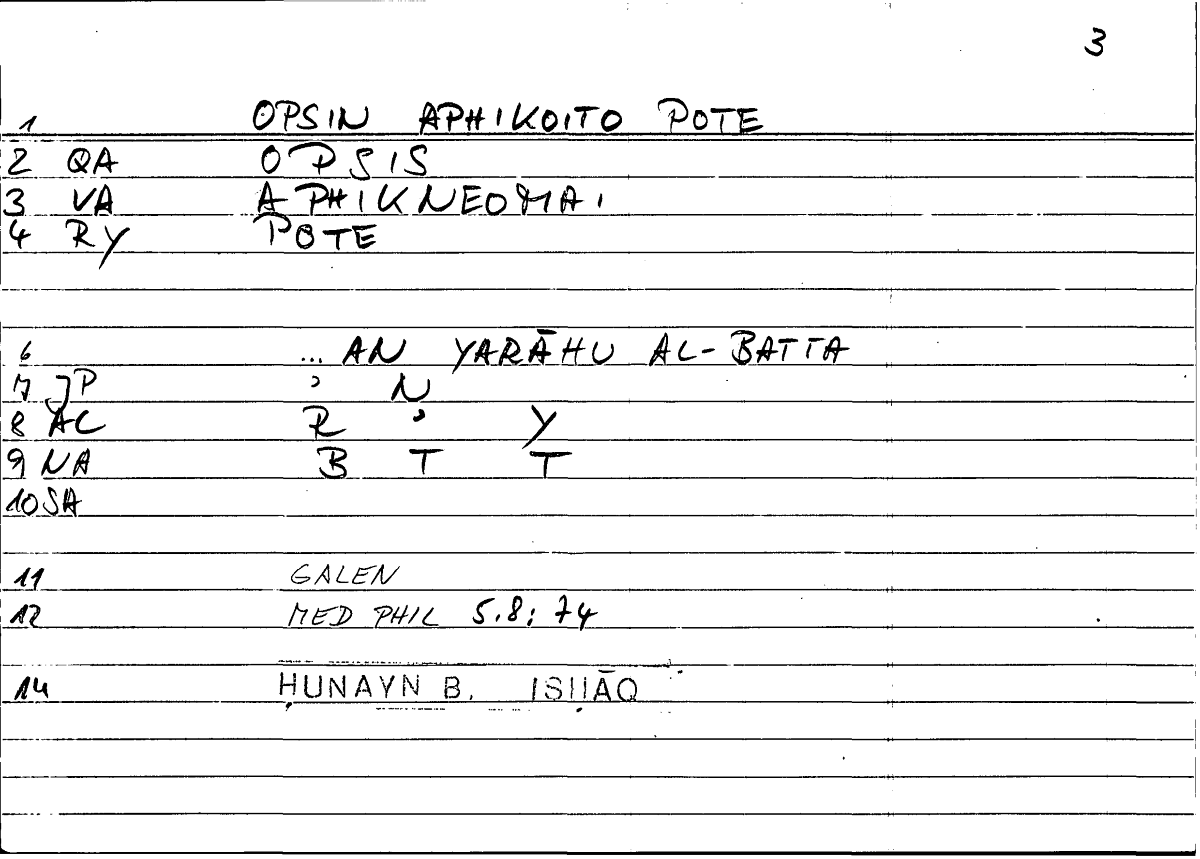 3
1 OPSIN APHIKOITO POTE
2 QA OPSIS
3 VA APHIKNEOMAI
4 RY POTE
6 ... AN YARĀHU AL-BATTA
7 JP ʾ N
8 AC R ʾ Y
9 NA B T T
10 SA
11 GALEN
12 MED PHIL 5.8: 74
14 ḤUNAYN B. ISḤĀQ